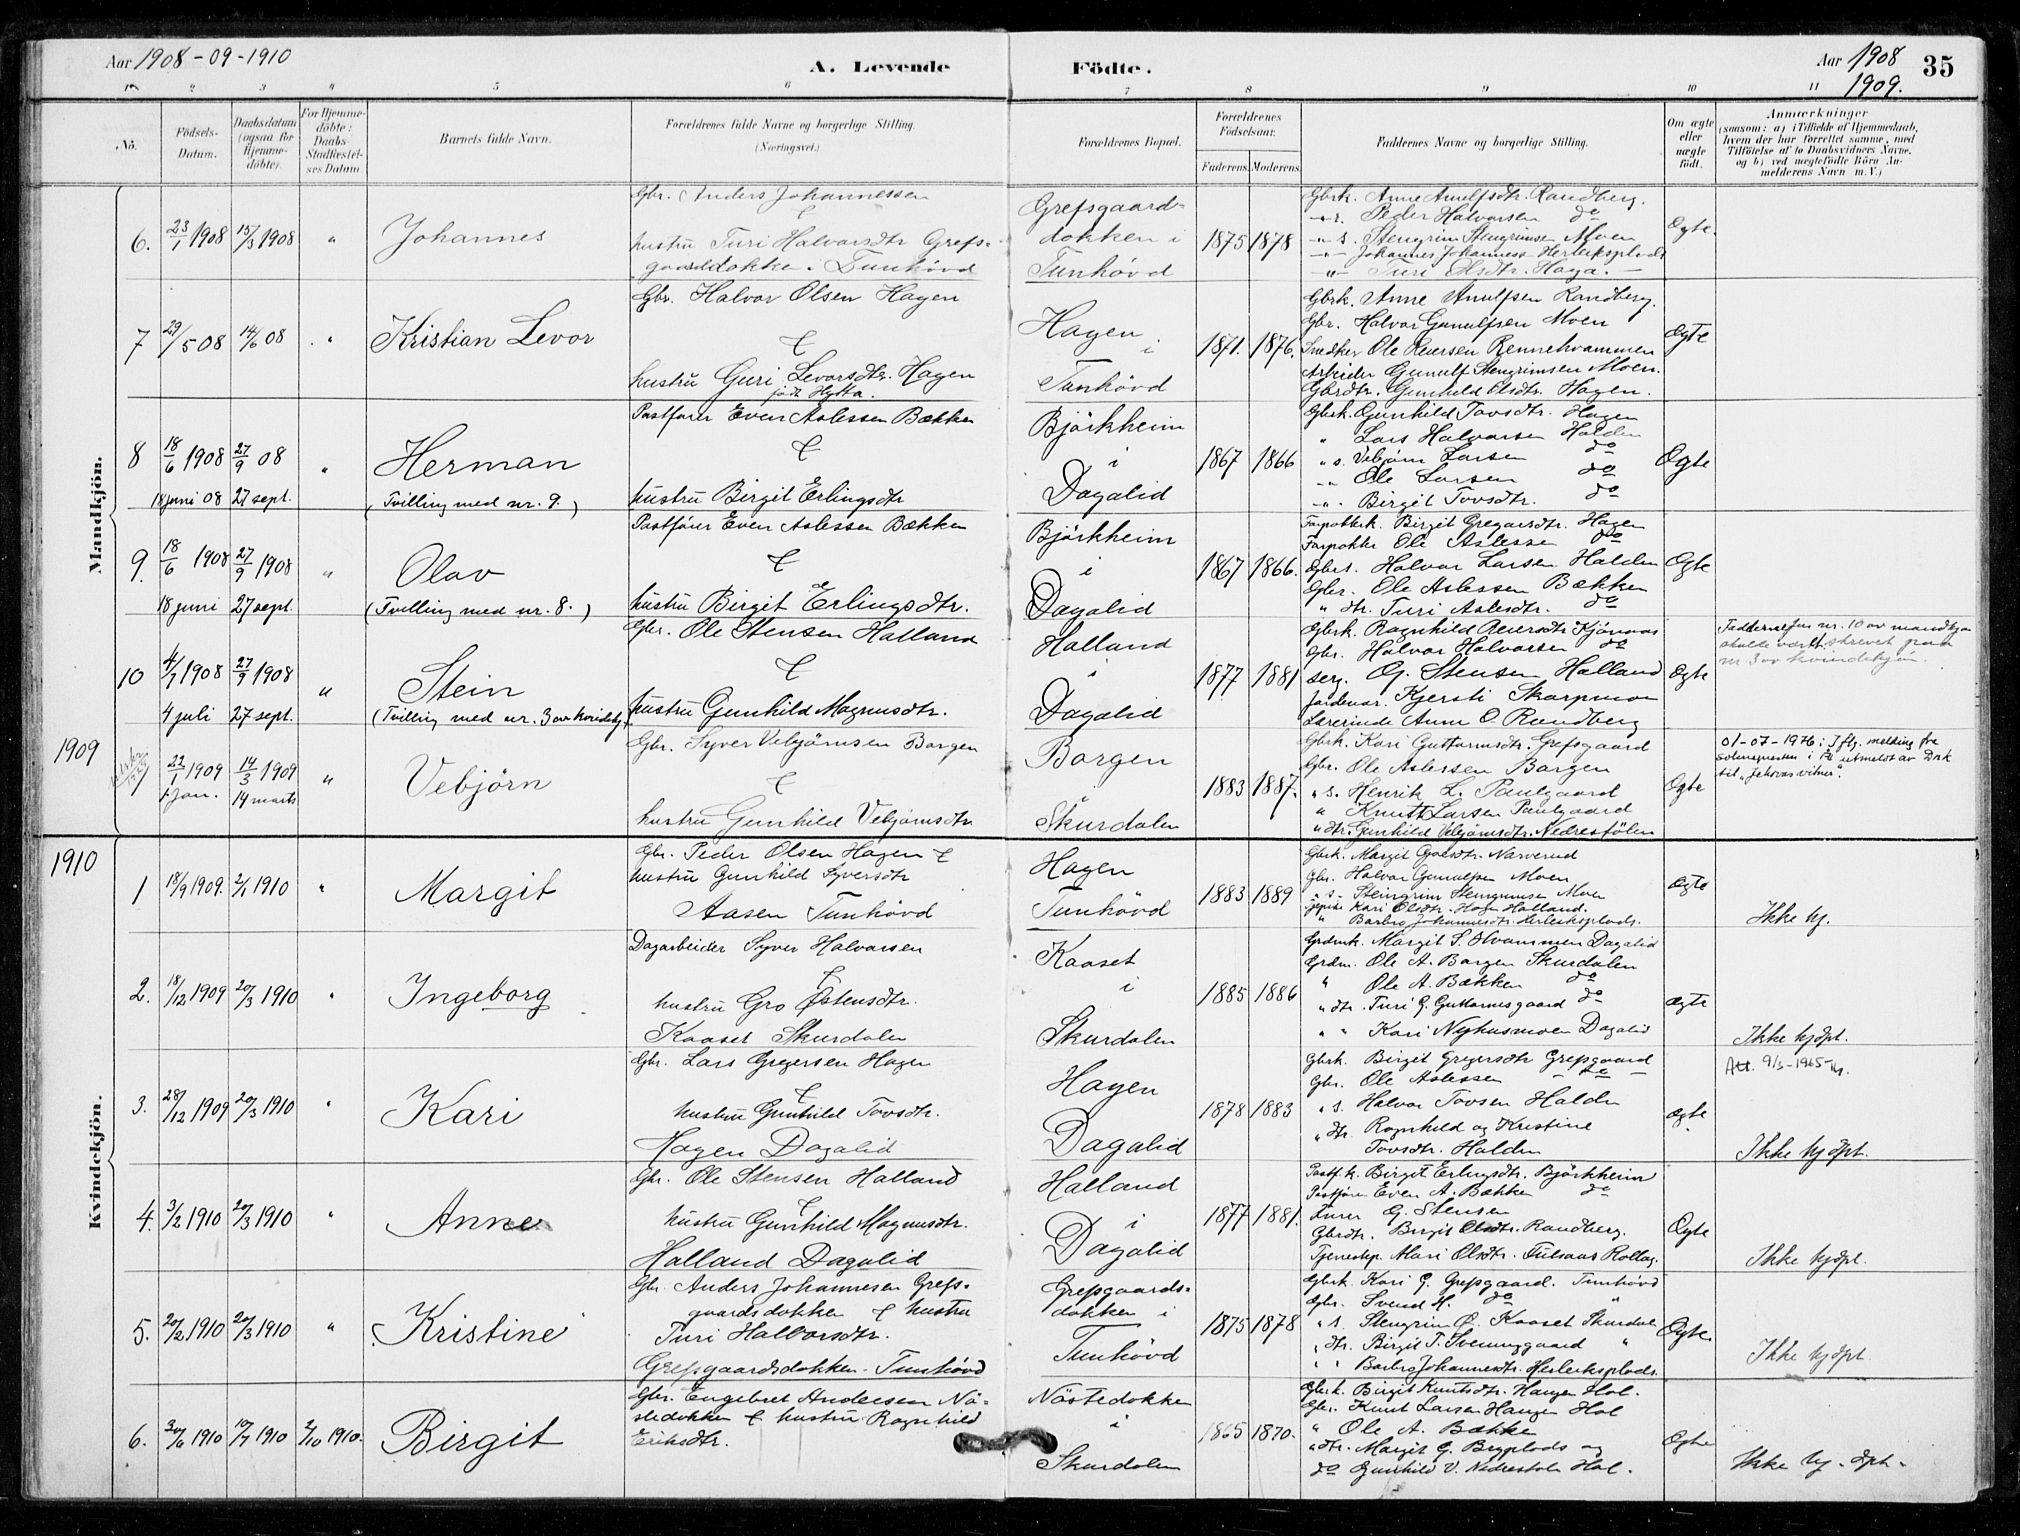 Aar 1908 - 09 - 1910
A. Levende Födte.
Aar 1908
1909.
35
1 2 3 4 5 6 7 8 9 10 11
No.
Födsels-Datum.
Daabsdatum (ogsaa for Hjemmedöbte).
For Hjemmedöbte: Daabs-Stadfæstelses Datum.
Barnets fulde Navn.
Forældrenes fulde Navne og borgerlige Stilling. (Næringsvei.)
Forældrenes Bopæl.
Forældrenes Födselsaar.
Faderens. Moderens.
Faddernes Navne og borgerlige Stilling.
Om ægte eller uægte födt.
Anmærkninger
(saasom: a) i Tilfælde af Hjemmedaab, hvem der har forrettet samme, med Tilföielse af to Daabsvidners Navne, og b) ved uægtefödte Börn Anmelderens Navn m. V.)
Mandkjön.
6. 23/1 1908 15/3 1908 "
Johannes
Gbr. Anders Johannessen
&
hustru Turi Halvorsdtr Grefsgaarddokken i Tunhövd
Grefsgaarddokken i
Tunhövd
1875 1878
Gbrk. Anne Arnulfsdtr. Randberg.
Peder Halvorsen do
Stengrim Stengrimsen Moen
Johannes Johannesen Herleiksplads
Turi Olsdtr. Haga.
Ægte.
7 29/5 08 14/6 08 "
Kristian Levor
Gbr. Halvor Olsen Hagen
&
hustru Guri Levorsdtr. Hagen
födt Hytta.
Hagen
i
Tunhövd
1871. 1876.
Gbrk. Anne Arnulfsen Randberg.
Gbr. Halvor Gunulfsen Moen
Snedker Ole Reiersen Rennehvammen
Arbeider Gunulf Stengrimsen Moen.
Gbrdtr. Gunhild Olsdtr. Hagen.
Ægte
8 18/6 1908 27/9 08 "
18 juni 08 27 sept.
Herman
(Tvilling med nr. 9.)
Postförer Even Aslessen Bækken
&
hustru Birgit Erlingsdtr
Björkheim
i
Dagalid
1867 1866
Gbrk. Gunhild Tovsdtr. Hagen
" Lars Halvorsen Halden
" s. Vebjörn Larsen do
Ole Larsen do
Birgit Tovsdtr. do
Ægte
9. 18/6 1908 27/9 1908 "
18 juni 27 sept.
Olav
(Tvilling med nr. 8.)
Postförer Even Aslessen Bækken
&
hustru Birgit Erlingsdtr.
Björkheim
i
Dagalid
1867 1866.
Forpakterk. Birgit Gregarsdtr. Hagen
Forpakter Ole Aslessen do
Gbrs. Halvor Larsen Halden
Gbr. Ole Aslessen Bækken
" dtr. Turi Aslesdtr. do
Ægte
10 4/7 1908 27/9 1908 "
4 juli 27 sept.
Stein
(Tvilling med nr. 3 av kvindekj.)
Gbr. Ole Stensen Halland
&
hustru Gunhild Magnusdtr.
Halland
i
Dagalid
1877 1881
Gbrk. Ragnhild Reiersdtr Kjönaas
Gbr. Halvor Halvorsen do
serg. G. Stensen Halland
Jordmor. Kjersti Skarpmoen
Lærerinde Anne O. Randberg
Ægte
Faddernefor nr. 10 av mandkjön
skulde vært skrevet paa
nr 3 av kvindekjön.
1909
22/1 1909 14/3 1909 "
Jan. 14 marts
Vebjörn
Gbr. Syver Vebjörnsen Borgen
&
hustru Gunhild Vebjörnsdtr
Borgen
i
Skurdalen
1883 1887.
Gbrk. Kari Guttormsdtr. Grefsgaard
Gbr. Ole Aslessen Borgen
" s. Henrik L. Paulgaard
" Knut Larsen Paulgaard
" dtr. Gunhild Vebjörnsdtr. Nedrestölen
Ægte
01-07-1976: Iflg. melding fra
sokneprestn i Ål utmeldt av Dnk
til "Jehovas vitner".
1910
Kvindekjön.
1 18/9 1909. 2/1 1910 "
Margit
Gbr. Peder Olsen Hagen &
hustru Gunhild Syversdtr
Aasen Tunhövd
Hagen
Tunhövd
1883 1889
Gbrk. Margit Narverud
Gbr. Halvor Gunulfsen Moen
" s. Steingrim Stengrimsen Moen
Kari Olsdtr. Hagen Halland.
" Barbro Johannesdtr. Herleiksplads.
Ægte
Ikke kj.
2. 18/12 1909 20/3 1910 "
Ingeborg
Dagarbeider Syver Halvorsen
&
hustru Gro Östensdtr.
Kaaset Skurdalen
Kaaset
i
Skurdalen
1885 1886
Grdmk. Margit S. Hvammen Dagalid
Grdm. Ole A. Borgen Skurdalen
" Ole A. Bækken do
" dtr. Turi G. Guttormsgaard do
" " Kari Nyhusmoen Dagalid
Ægte
Ikke kjöpt.
3. 28/12 1909 20/3 1910 "
Kari
Gbr. Lars Gregersen Hagen
&
hustru Gunhild Tovsdtr.
Hagen Dagalid
Hagen
Dagalid
1878 1883
Gbrk. Birgit Gregersdtr Grefsgaard
Gbr. Ole Aslessen do
" s. Halvor Tovsen Halden
" dtr. Ragnhild og Kristine
Tovsdtr. Halden
Ægte
Att. 9/3-1965
Ikke kjöpt.
4. 3/2 1910 20/3 1910 "
Anne
Gbr. Ole Stensen Halland
&
hustru Gunhild Magnusdtr.
Halland Dagalid
Halland
i
Dagalid
1877 1881.
Postf.k. Birgit Erlingsdtr. Björkheim
Postförer Even A. Bække do
G. Stensen
Gbrdtr. Birgit Olsdtr. Randberg.
Tjenestep. Mari Olsdtr. Fulsaas Rollag.
Ægte
Ikke kjöpt.
5. 20/2 1910 20/3 1910 "
Kristine
Gbr. Anders Johannesen Grefsgaardsdokken & hustru
Turi Halvorsdtr.
Grefsgaardsdokken - Tunhövd
Grefsgaardsdokken i
Tunhövd
1875 1878
Gbrk. Kari G. Grefsgaard. Tunhövd
Gbr. Svend H. do "
" s. Stengrim Ö. Kaaset Skurdal
" dtr. Birgit T. Svennggaard "
" " Barbro Johannesdtr. Herleiksplads.
Ægte.
Ikke kjöpt.
6. 20/6 1910 10/7 1910 2/10 1910.
Birgit
Gbr. Engebret Andersen Nöstedokken & hustru Ragnhild
Eriksdtr.
Nöstedokken
i
Skurdalen
1865 1870.
Gbrk. Birgit Knutsdtr. Haugen Hol.
Gbr. Knut Larsen Haugen Hol
" Ole A. Bække
" dtr. Margit G. Bryplads og
do Gunhild V. Nedrestole Hol.
Ægte
Ikke kj. öpt.